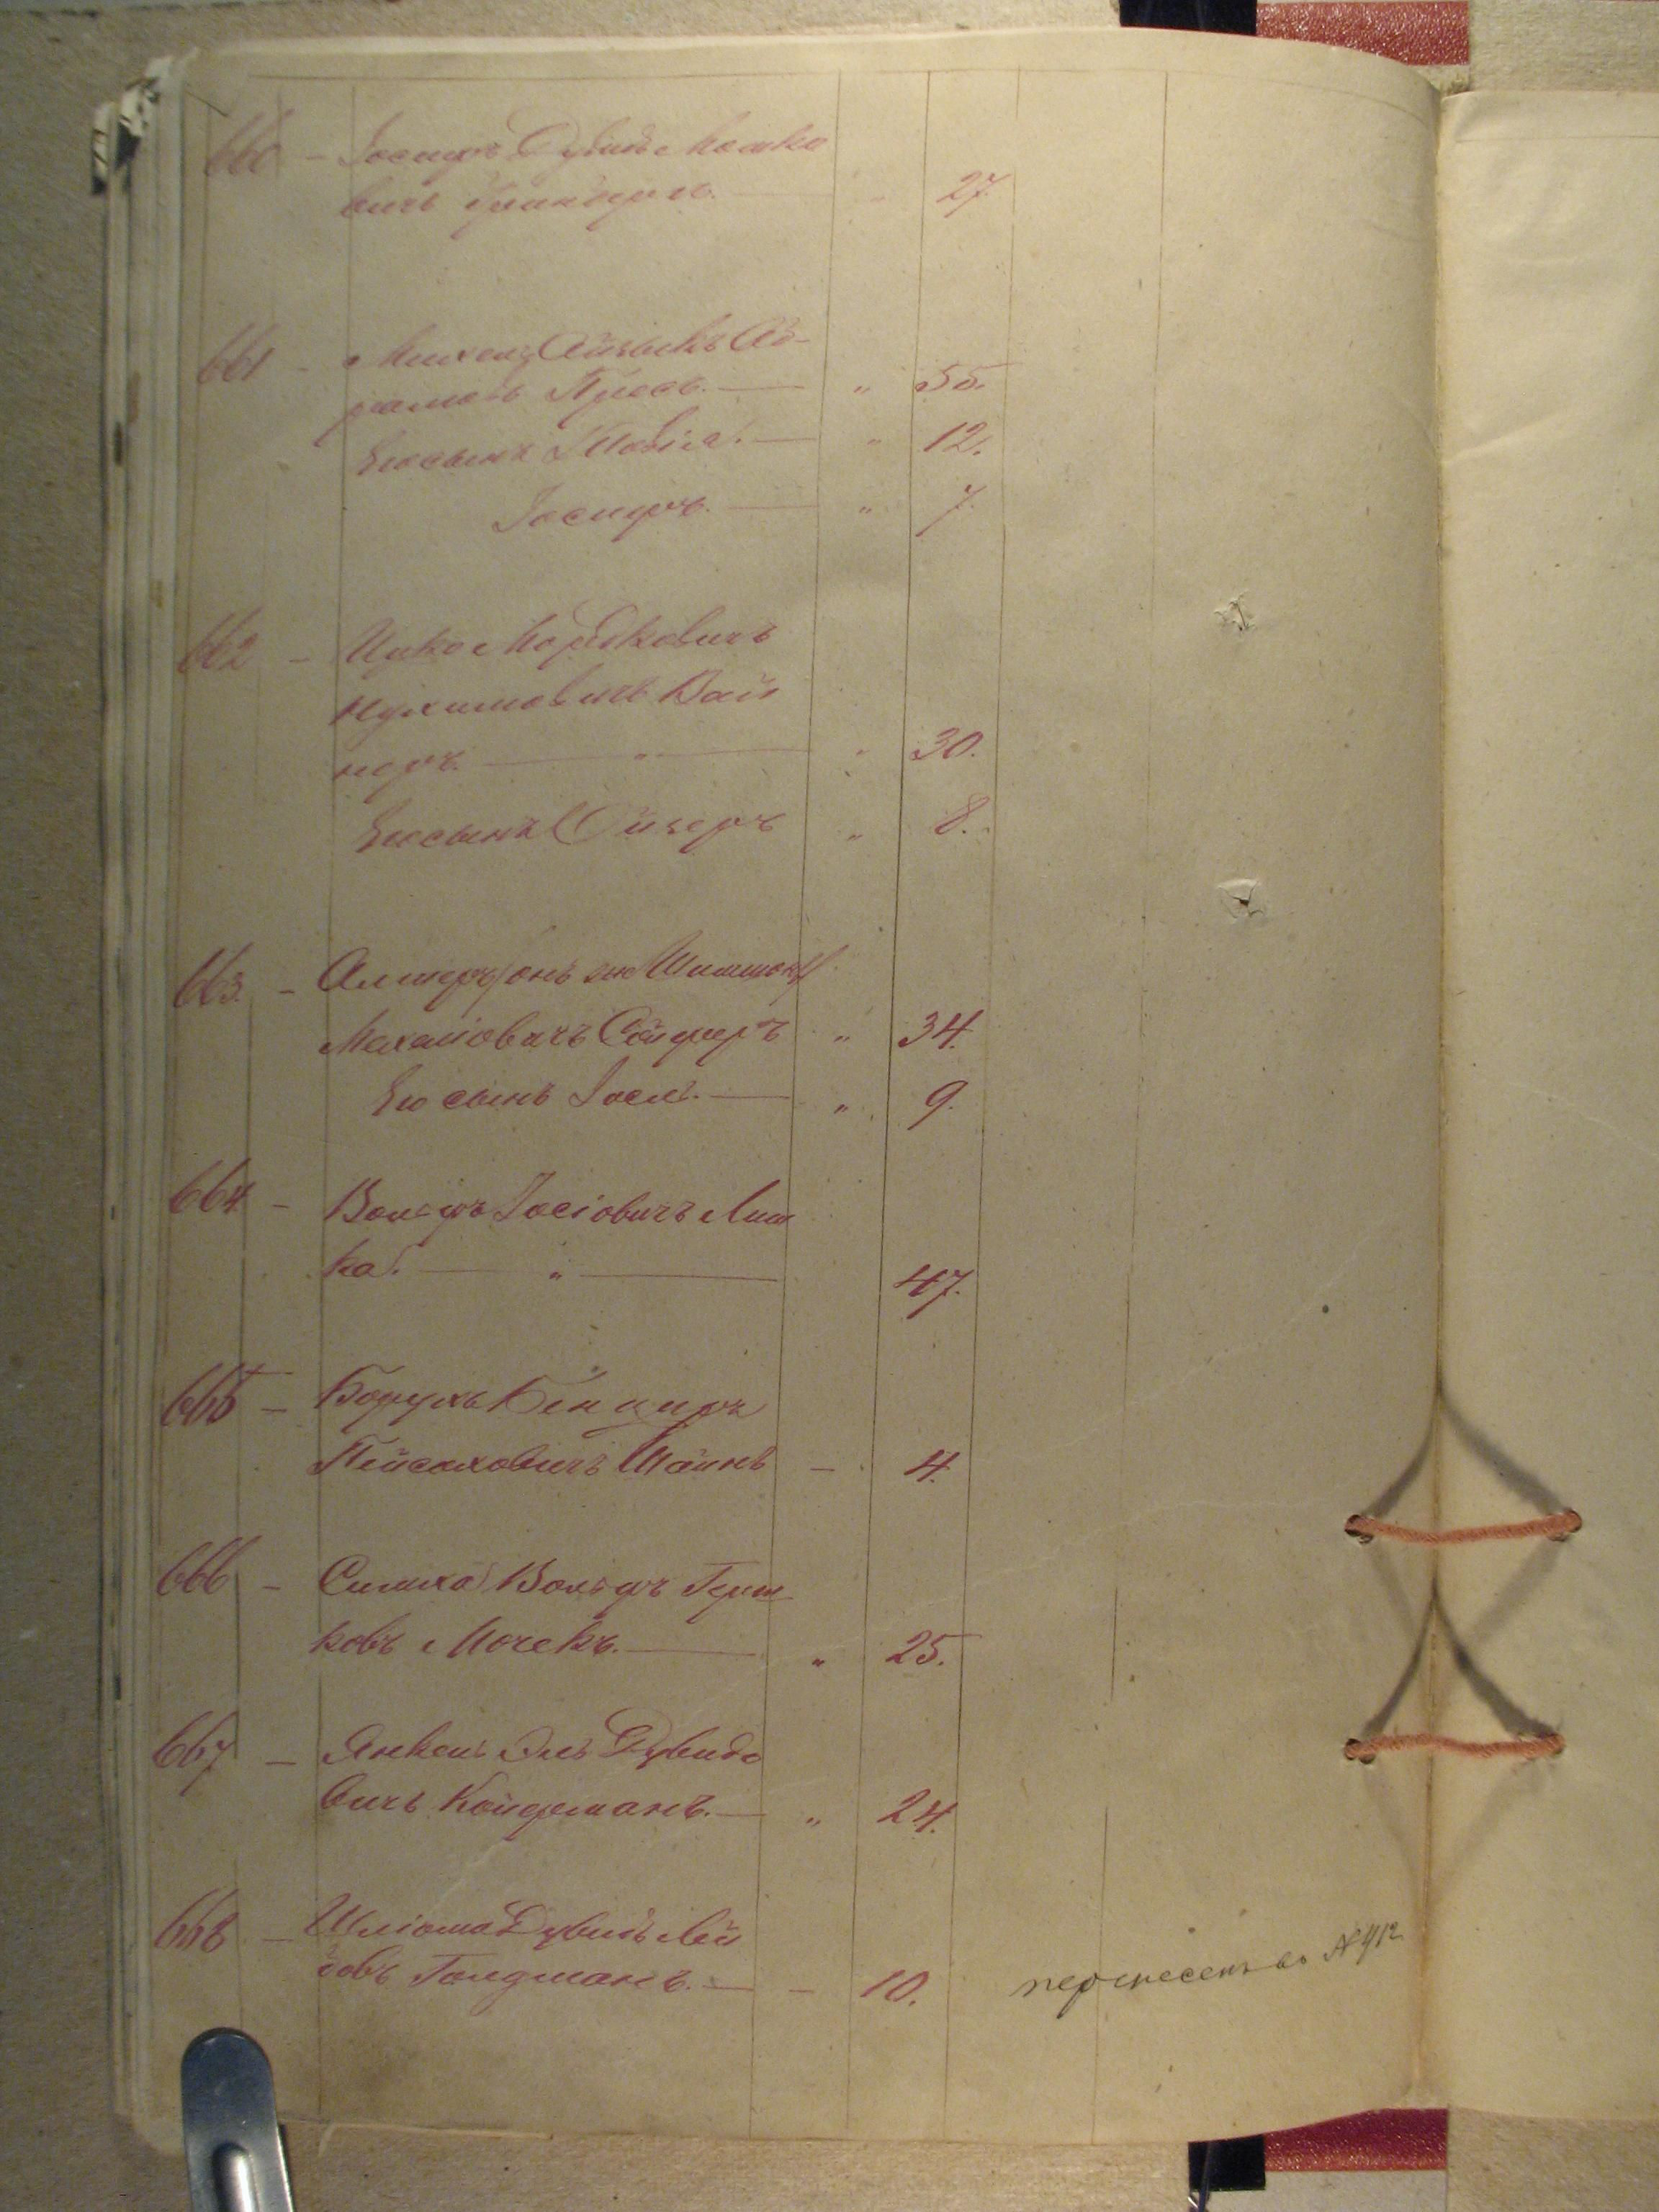 660 - Іосифъ Дувидъ Мошко
вичъ " 27.
661 - Михель Айзыкъ Аб-
рамовъ Пресъ. — " 55.
Его сынъ Товія. — " 12.
Іосифъ. — " 7.
662 - Ицко Мордковичъ
Нухимовичъ Вай
неръ. — " — " 30.
Его сынъ Ойзеръ " 8.
663. - Алтеръ онъ же Шимшонъ
Мехелiовичъ Сойферъ " 34.
Его сынъ Іосл. — " 9.
664 - Вольфъ Іосіовичъ Лип
ка. — " — 47.
665 - Борухъ Бенціонъ
Пейсаховичъ Штейнъ — 4.
666 - Симха Вольфъ Герш
ковъ Мочекъ. — " 25.
667 - Янкель Эль Дувидо
вичъ Койфманъ. — " 24.
668 - Шліома Дувидъ Лей
бовъ Голдманъ. — - 10. перенесенъ въ №912